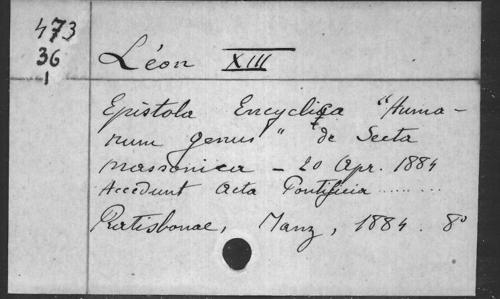 473
36
1
Léon XIII
Epistola Encyclica "Huma-
num genus" de Secta
Massonica – 20 Apr. 1884
Accedunt Acta Pontificia .........
Ratisbonae, Manz, 1884. 8°